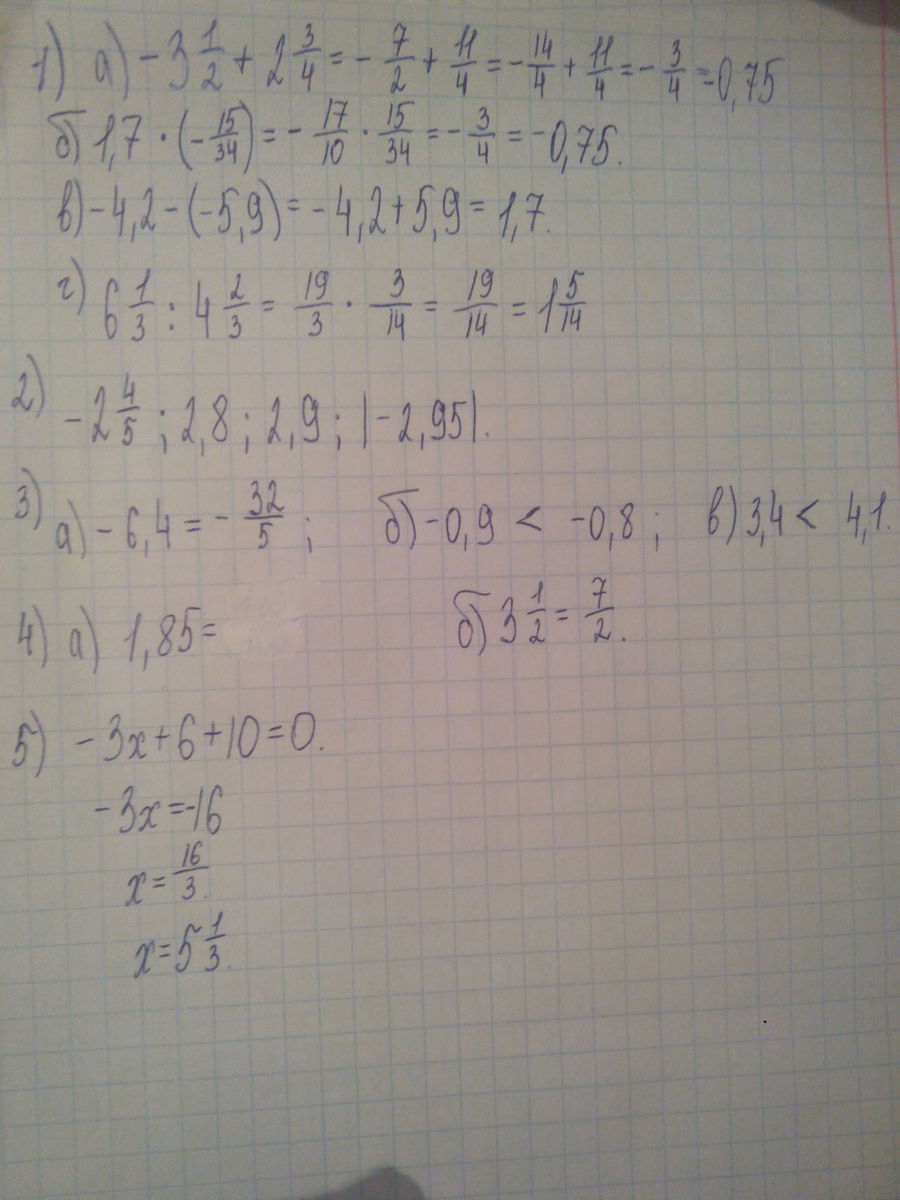 1) а) -3 1/2 + 2 3/4 = - 7/2 + 11/4 = - 14/4 + 11/4 = - 3/4 = -0,75
б) 1,7 · (- 15/34) = - 17/10 · 15/34 = - 3/4 = -0,75.
в) -4,2 - (-5,9) = -4,2 + 5,9 = 1,7.
г) 6 1/3 : 4 2/3 = 19/3 · 3/14 = 19/14 = 1 5/14
2) -2 4/5 ; 2,8 ; 2,9 ; |-2,95|.
3) а) -6,4 = - 32/5 ; б) -0,9 < -0,8 ; в) 3,4 < 4,1.
4) а) 1,85 = б) 3 1/2 = 7/2.
5) -3x + 6 + 10 = 0.
-3x = -16
x = 16/3.
x = 5 1/3.